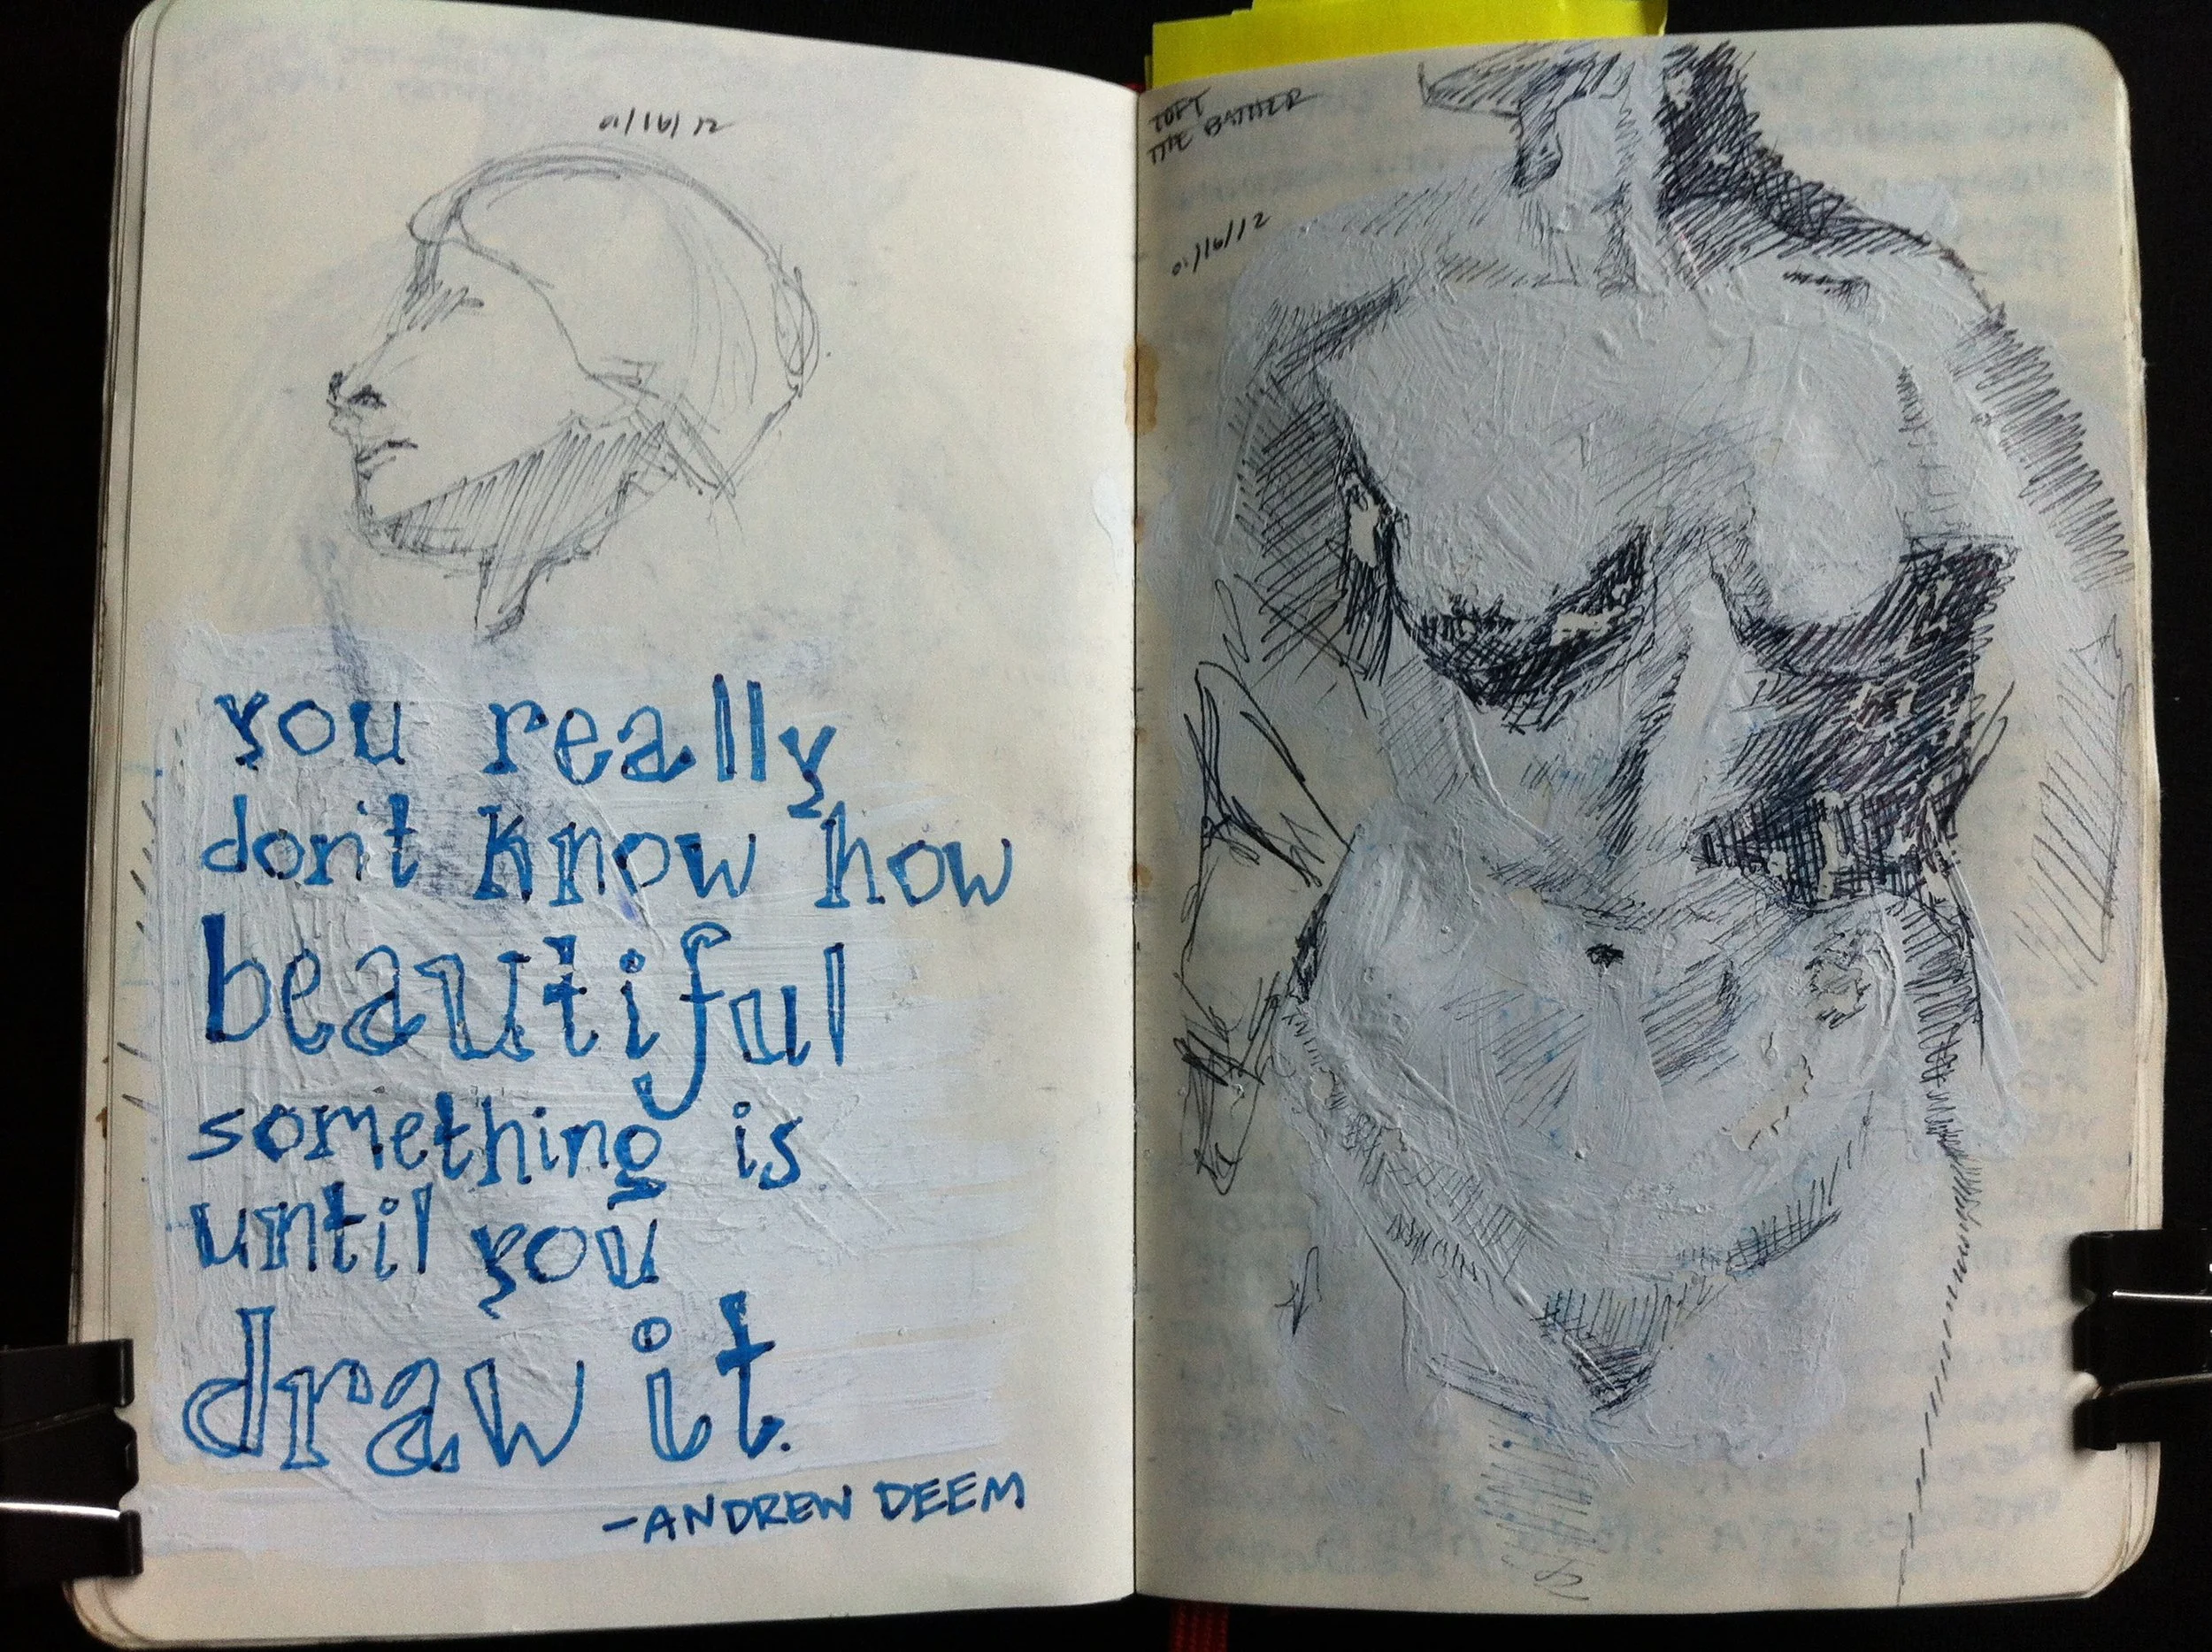 01/16/12
you really
don't know how
beautiful
something is
until you
draw it.
-ANDREW DEEM
TOFT
THE BATHER
01/16/12